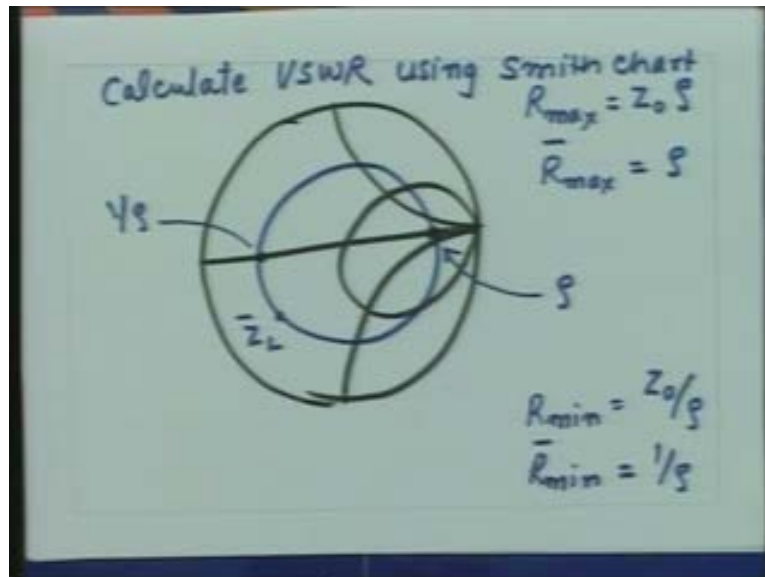 Calculate VSWR using Smith chart
Rmax = Z₀ ρ
R̄max = ρ
1/ρ
ρ
Z̄L
Rmin = Z₀/ρ
R̄min = 1/ρ